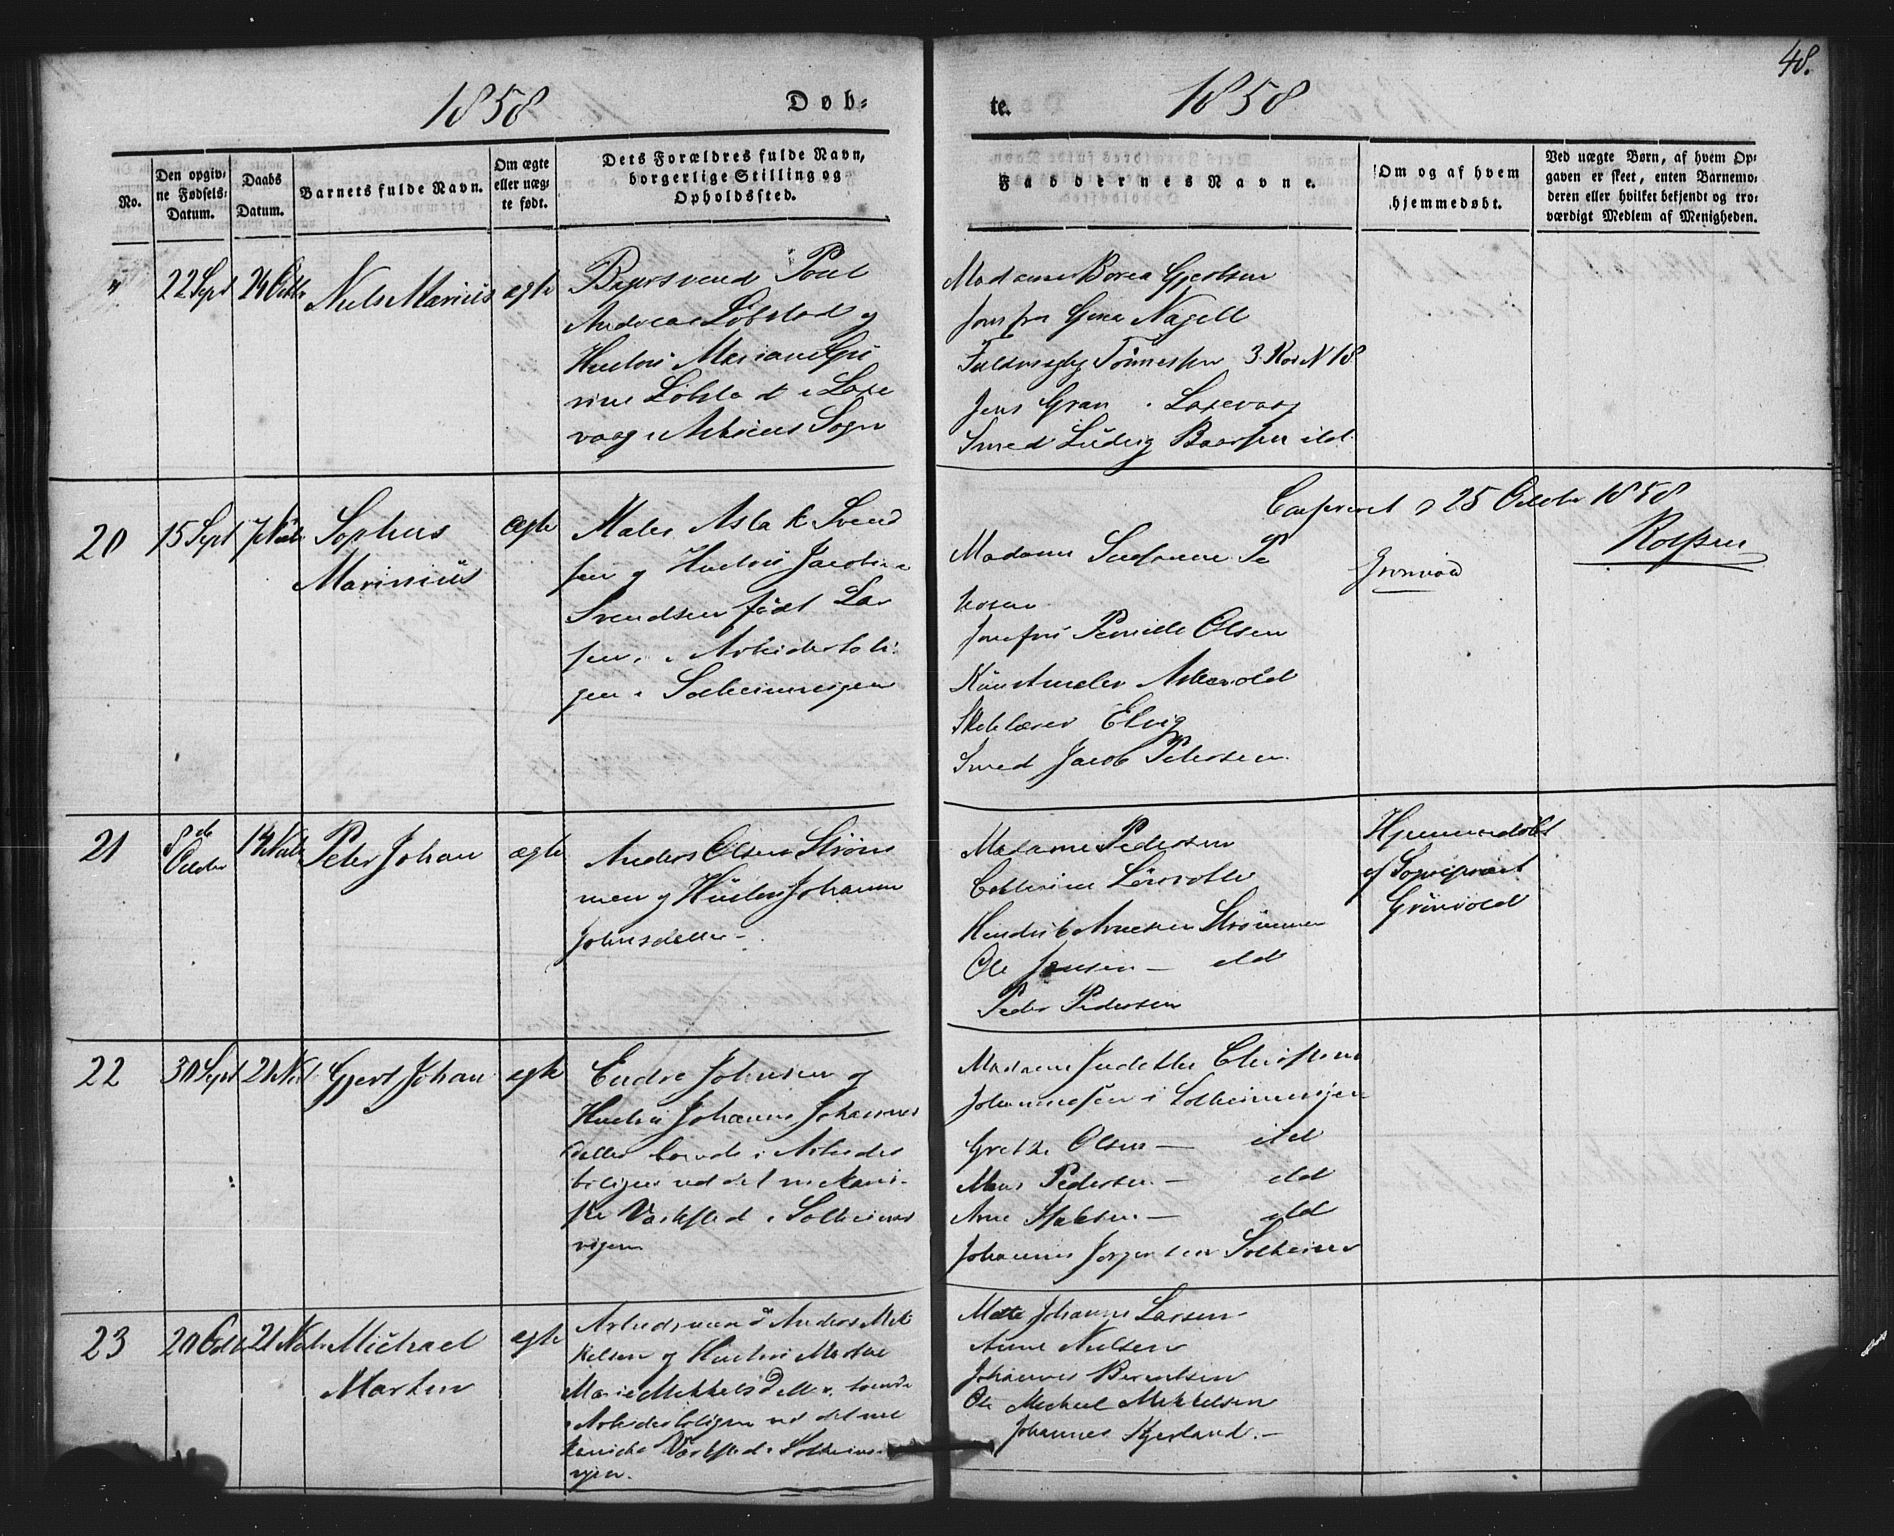 48.
1858
Døb-
te.
1858
No.
Den opgiv-
ne Fødsels-
Datum.
Daabs
Datum.
Barnets fulde Navn.
Om ægte
eller uæg-
te født.
Dets Forældres fulde Navn,
borgerlige Stilling og
Opholdssted.
Faddernes Navne.
Om og af hvem
hjemmedøbt.
Ved uægte Børn, af hvem Op-
gaven er skeet, enten Barnemo-
deren eller hvilket bekjendt og tro-
værdigt Medlem af Menigheden.
"
22 Sept
24 Octbr
Niels Marius
ægte
Bagersvend Poul
Andreas Løbstad og
Hustru Mariane
Løbstad i Laxe
vaag i Sogn
Madame Borea Gjertsen
Jomfru Gina Nagell
Fuldmægtig Tønnesen 3 Rod N 18
Jens Gran Laxevaag
Smed Ludvig itd.
20
15 Sept
7 Novbr
Sophus
Marinius
ægte
Maler Aslak Svend
sen og Hustru Jacobine
Svendsen født Lar
sen i Arbeiderboli-
gen i Solheimsvigen
Conferert d 25 Octobr 1858
Rolfsen
Madame Susanne Pe
Jomfru Pernille Olsen
Kunstmaler Askevold
Skolelærer Elvig
Smed Jacob Pedersen
Grønvold
21
8de
Octbr
14 Novbr
Peter Johan
ægte
Anders Olsen Strøm
men og Hustru Johanne
Johnsdatter -
Madame Pedersen
Cathrine
Hendrik Arnesen Strømmen
Ole Jensen - itd
Peder Pedersen
Hjemmedøbt
af Sognepræst
Grønvold
22
30 Sept
21 Nov
Gjert Johan
ægte
Endre Johnsen og
Hustru Johanne Johannes
datter boende i Arbeider
boligen ved det mekani-
ske Værksted i Solheims
vigen
Madame Judithe Christine
Johannesen i Solheimsvigen
Grethe Olsen - itd
Mons Pedersen - itd
Arne - itd
Johannes Jørgensen Solheim
23
20 Octb
21 Novbr
Michael
Martin
ægte
Arbeidsmand Anders Mik
kelsen og Hustru Marthe
Marie Mikkelsdatter, boende
i Arbeiderboligen ved det me
kaniske Værksted i Solheims-
vigen.
Mette Johanne Larsen
Anne Nielsen
Johannes Berentsen
Ole Michael Mikkelsen
Johannes Kjerland. -